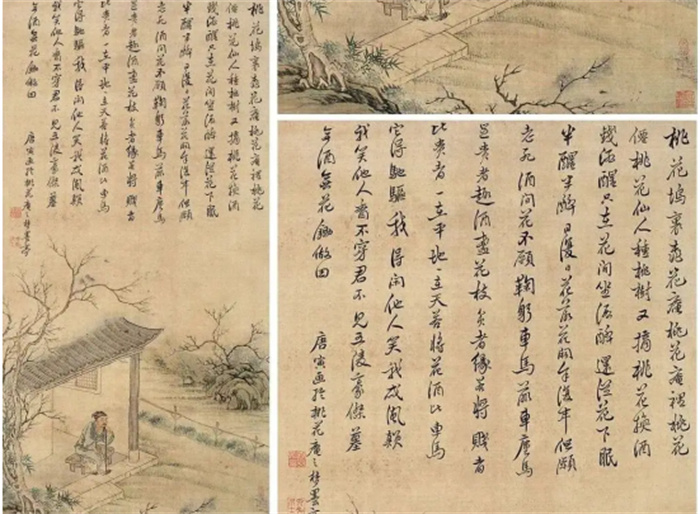 桃花塢裏桃花庵裡桃花
僊桃花仙人種桃樹又摘桃花換酒
錢酒醒只在花間坐酒醉還須花下眠
半醒半醉日復日花落花開年復年但願
老死酒間花不願鞠躬車馬前車塵馬
足貴者趣酒盞花枝貧者緣若將賤者
比貴者一在平地一在天若將花酒比車馬
它得驅馳我得閒他人笑我忒風顛
我笑他人看不穿君不見五陵豪傑墓
無酒無花鋤做田
唐寅画於桃花庵之梦墨亭
桃花塢裏桃花庵裡桃花
僊桃花仙人種桃樹又摘桃花換酒
錢酒醒只在花間坐酒醉還須花下眠
半醒半醉日復日花落花開年復年但願
老死酒間花不願鞠躬車馬前車塵馬
足貴者趣酒盞花枝貧者緣若將賤者
比貴者一在平地一在天若將花酒比車馬
它得驅馳我得閒他人笑我忒風顛
我笑他人看不穿君不見五陵豪傑墓
無酒無花鋤做田
唐寅画於桃花庵之梦墨